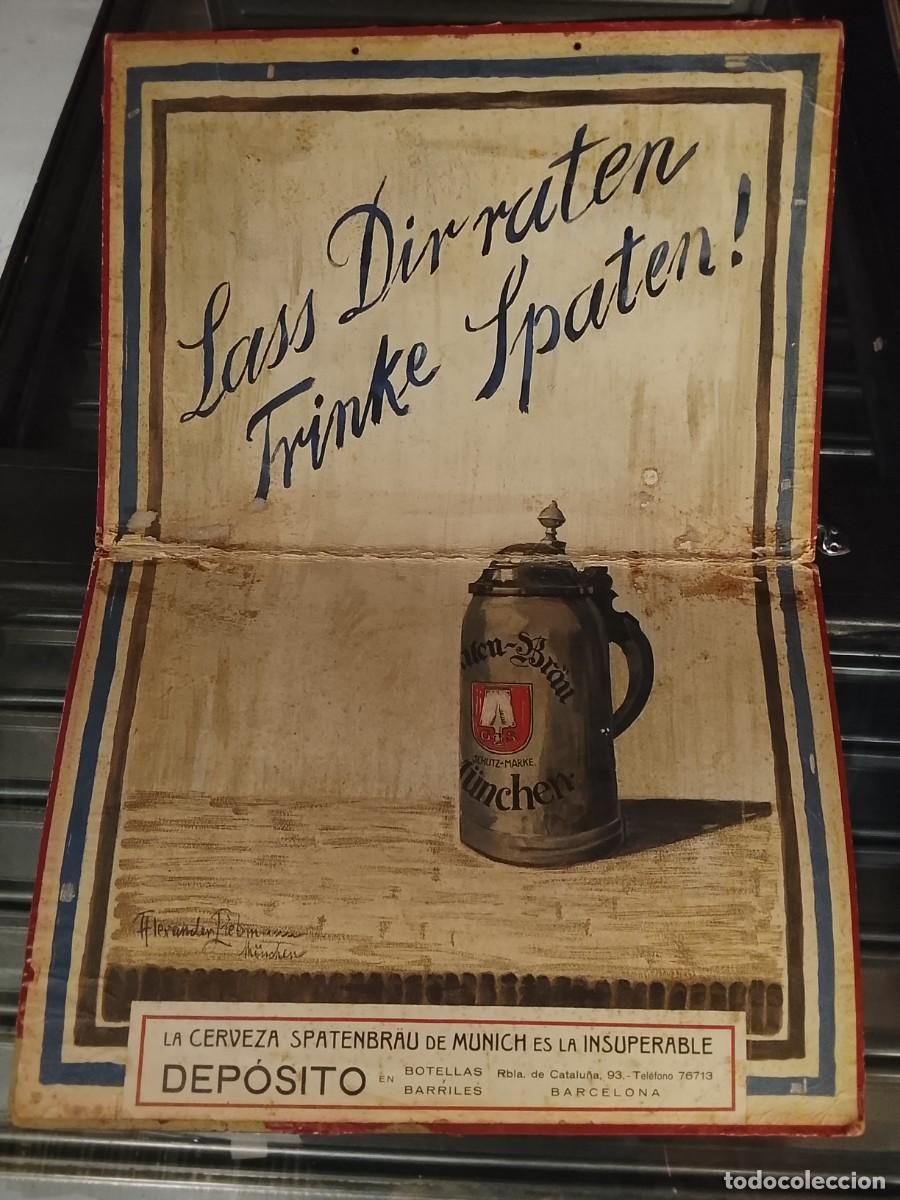 Lass Dir raten
Trinke Spaten!
aten-Bräu
G S
SCHUTZ-MARKE.
München
Alexander Liebmann
München
LA CERVEZA SPATENBRÄU DE MUNICH ES LA INSUPERABLE
DEPÓSITO EN BOTELLAS Y BARRILES
Rbla. de Cataluña, 93.-Teléfono 76713
BARCELONA
todocoleccion